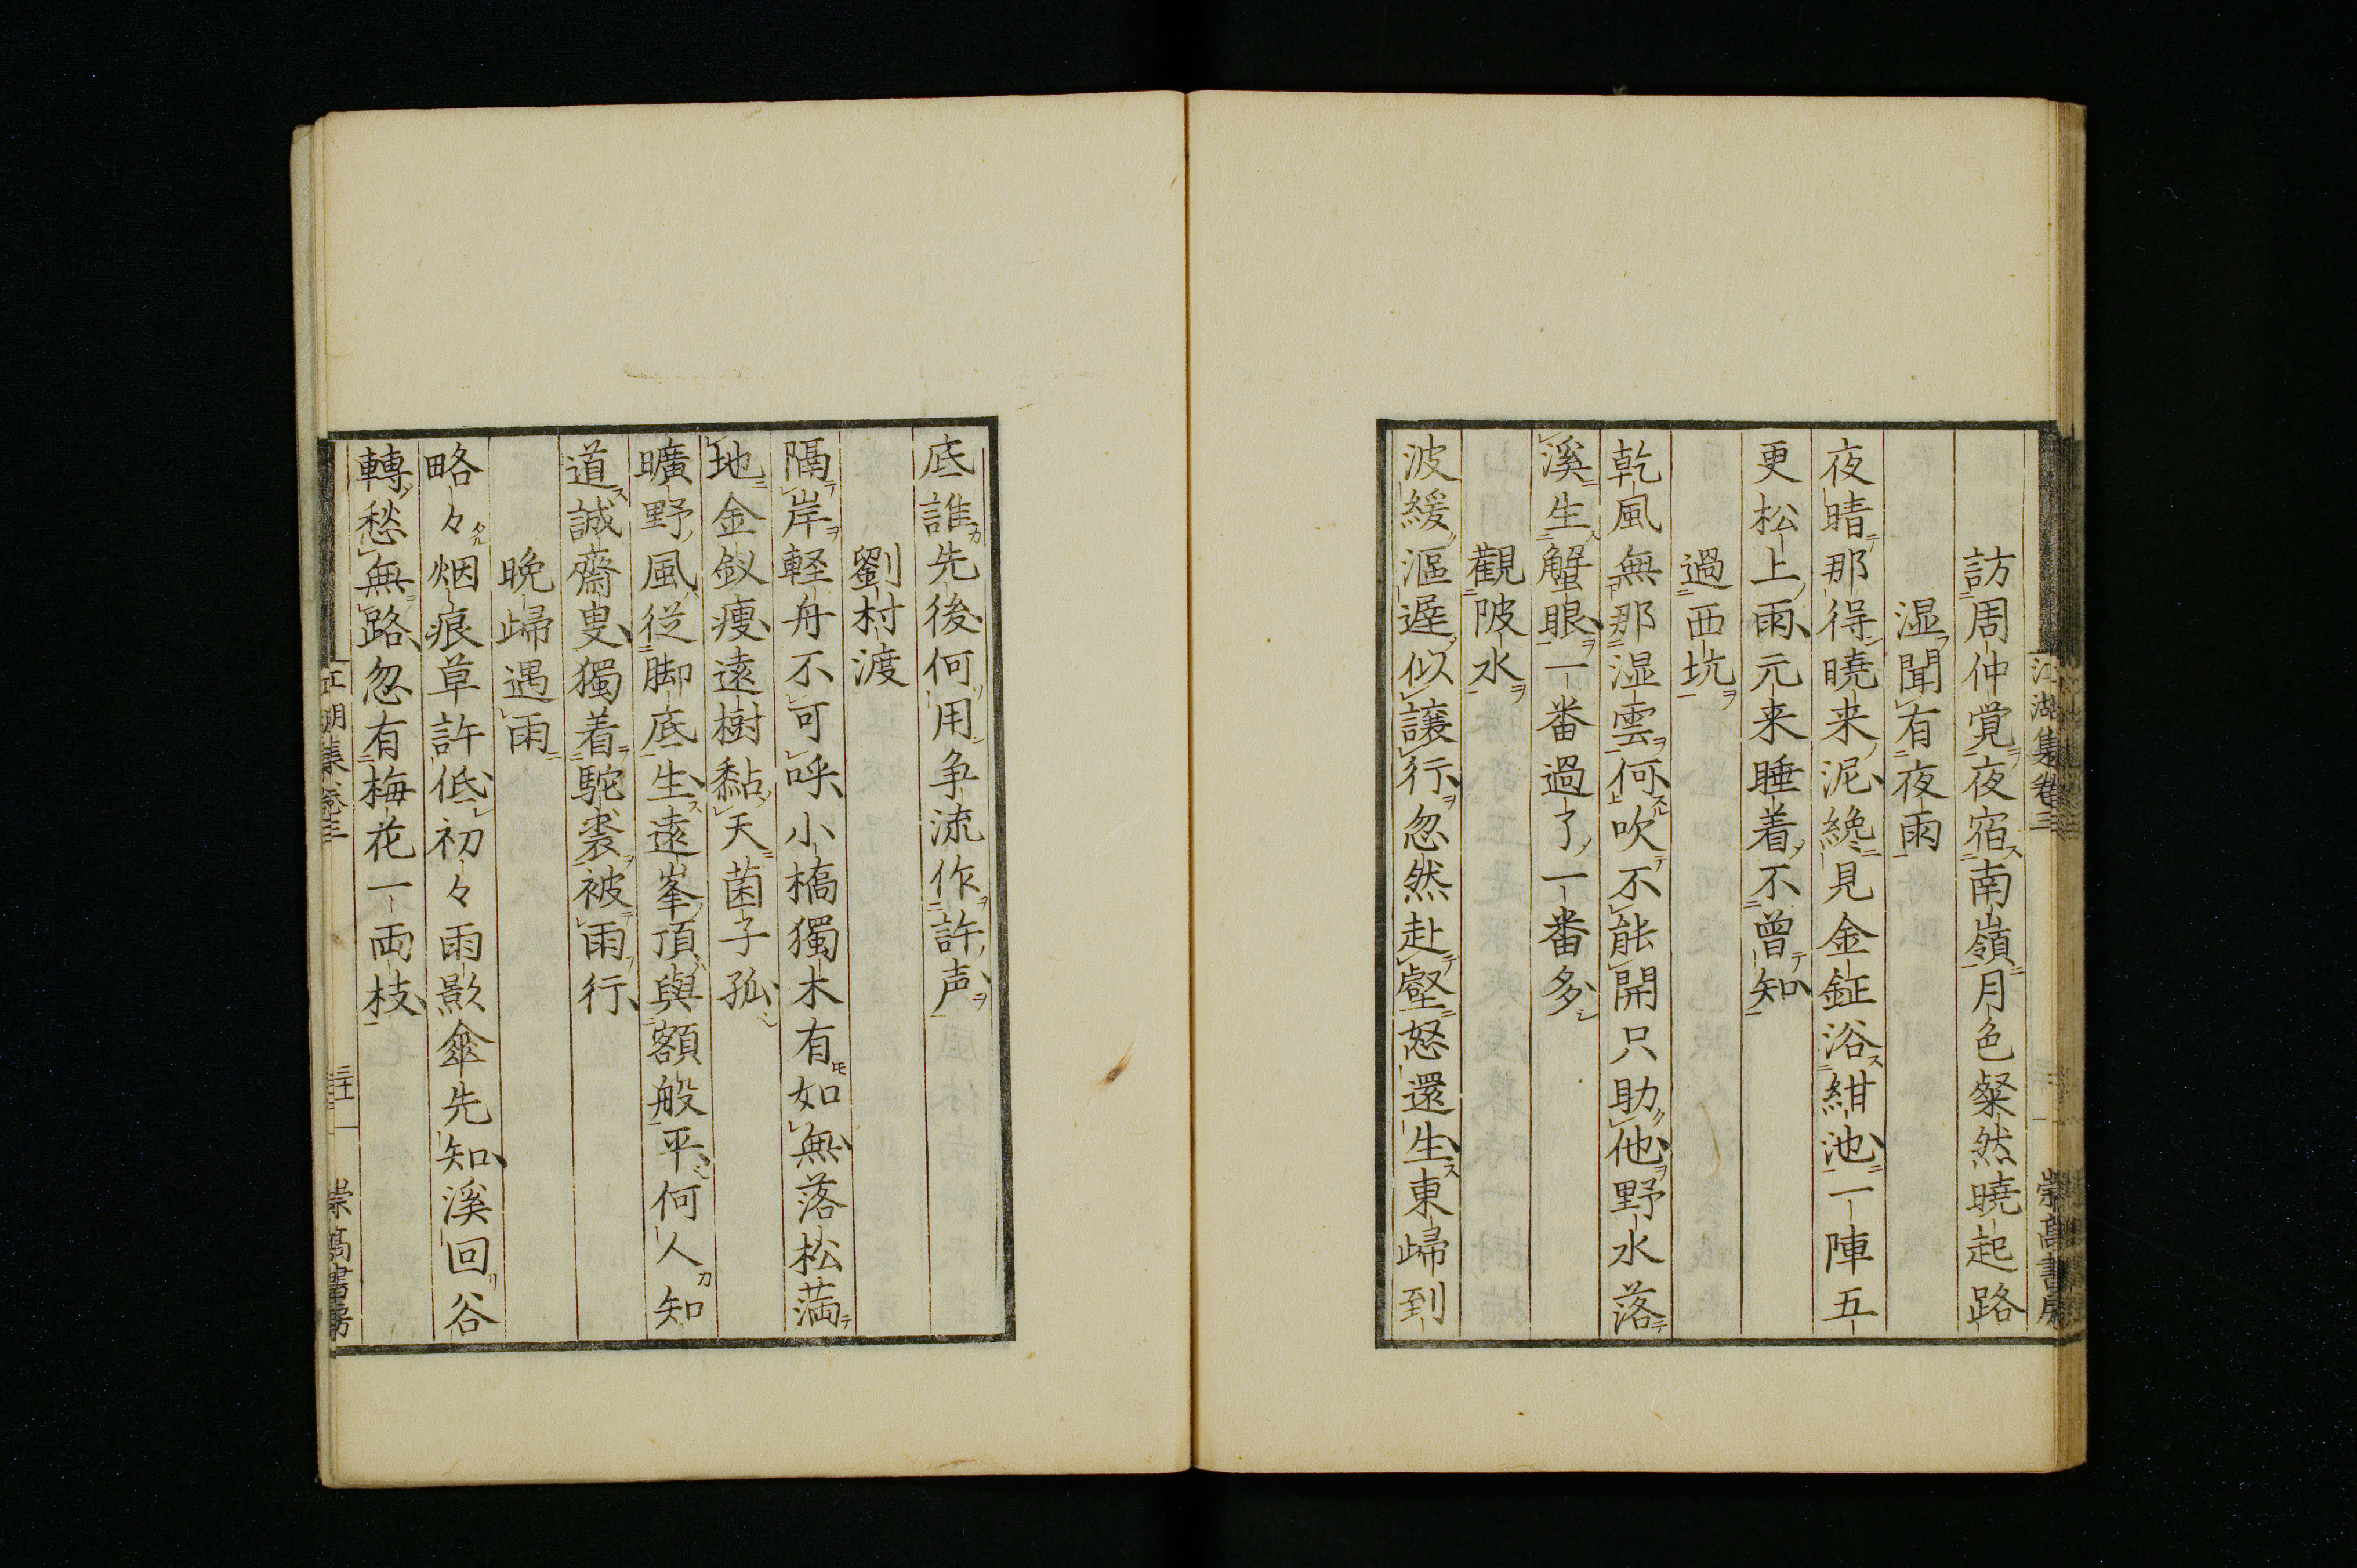 江湖集卷三
崇高書房
訪周仲覚夜宿南嶺月色粲然暁起路
湿聞有夜雨
夜晴那得暁来泥纔見金鉦浴紺池一陣五
更松上雨元来睡着不曾知
過西坑
乾風無那湿雲何吹不能開只助他野水落
溪生蟹眼一番過了一番多
觀陂水
波緩漚遅似譲行忽然赴壑怒還生東歸到
底誰先後何用争流作許声
劉村渡
隔岸軽舟不可呼小橋獨木有如無落松満
地金釵痩遠樹黏天菌子孤
曠野風従脚底生遠峯頂與額般平何人知
道誠齋叟獨着駝裘被雨行
晩歸遇雨
略々烟痕草許低初々雨影傘先知溪回谷
轉愁無路忽有梅花一両枝
江湖集卷三
崇高書房